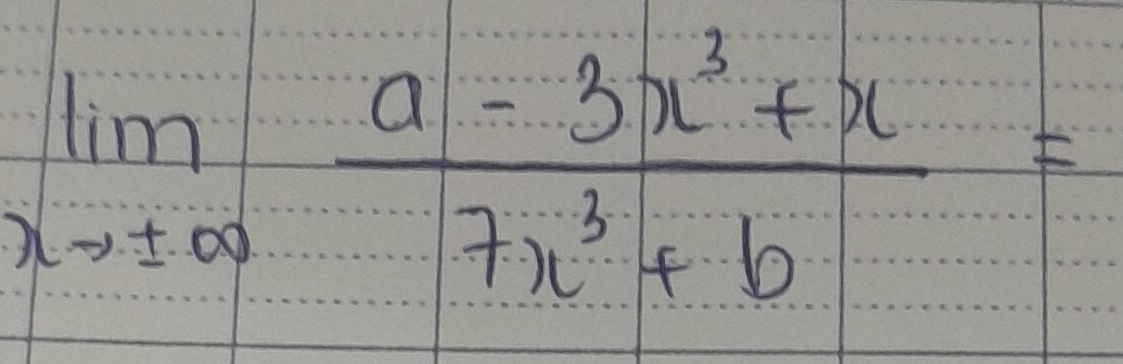 lim a - 3x³ + x =
x → ± ∞ 7x³ + b